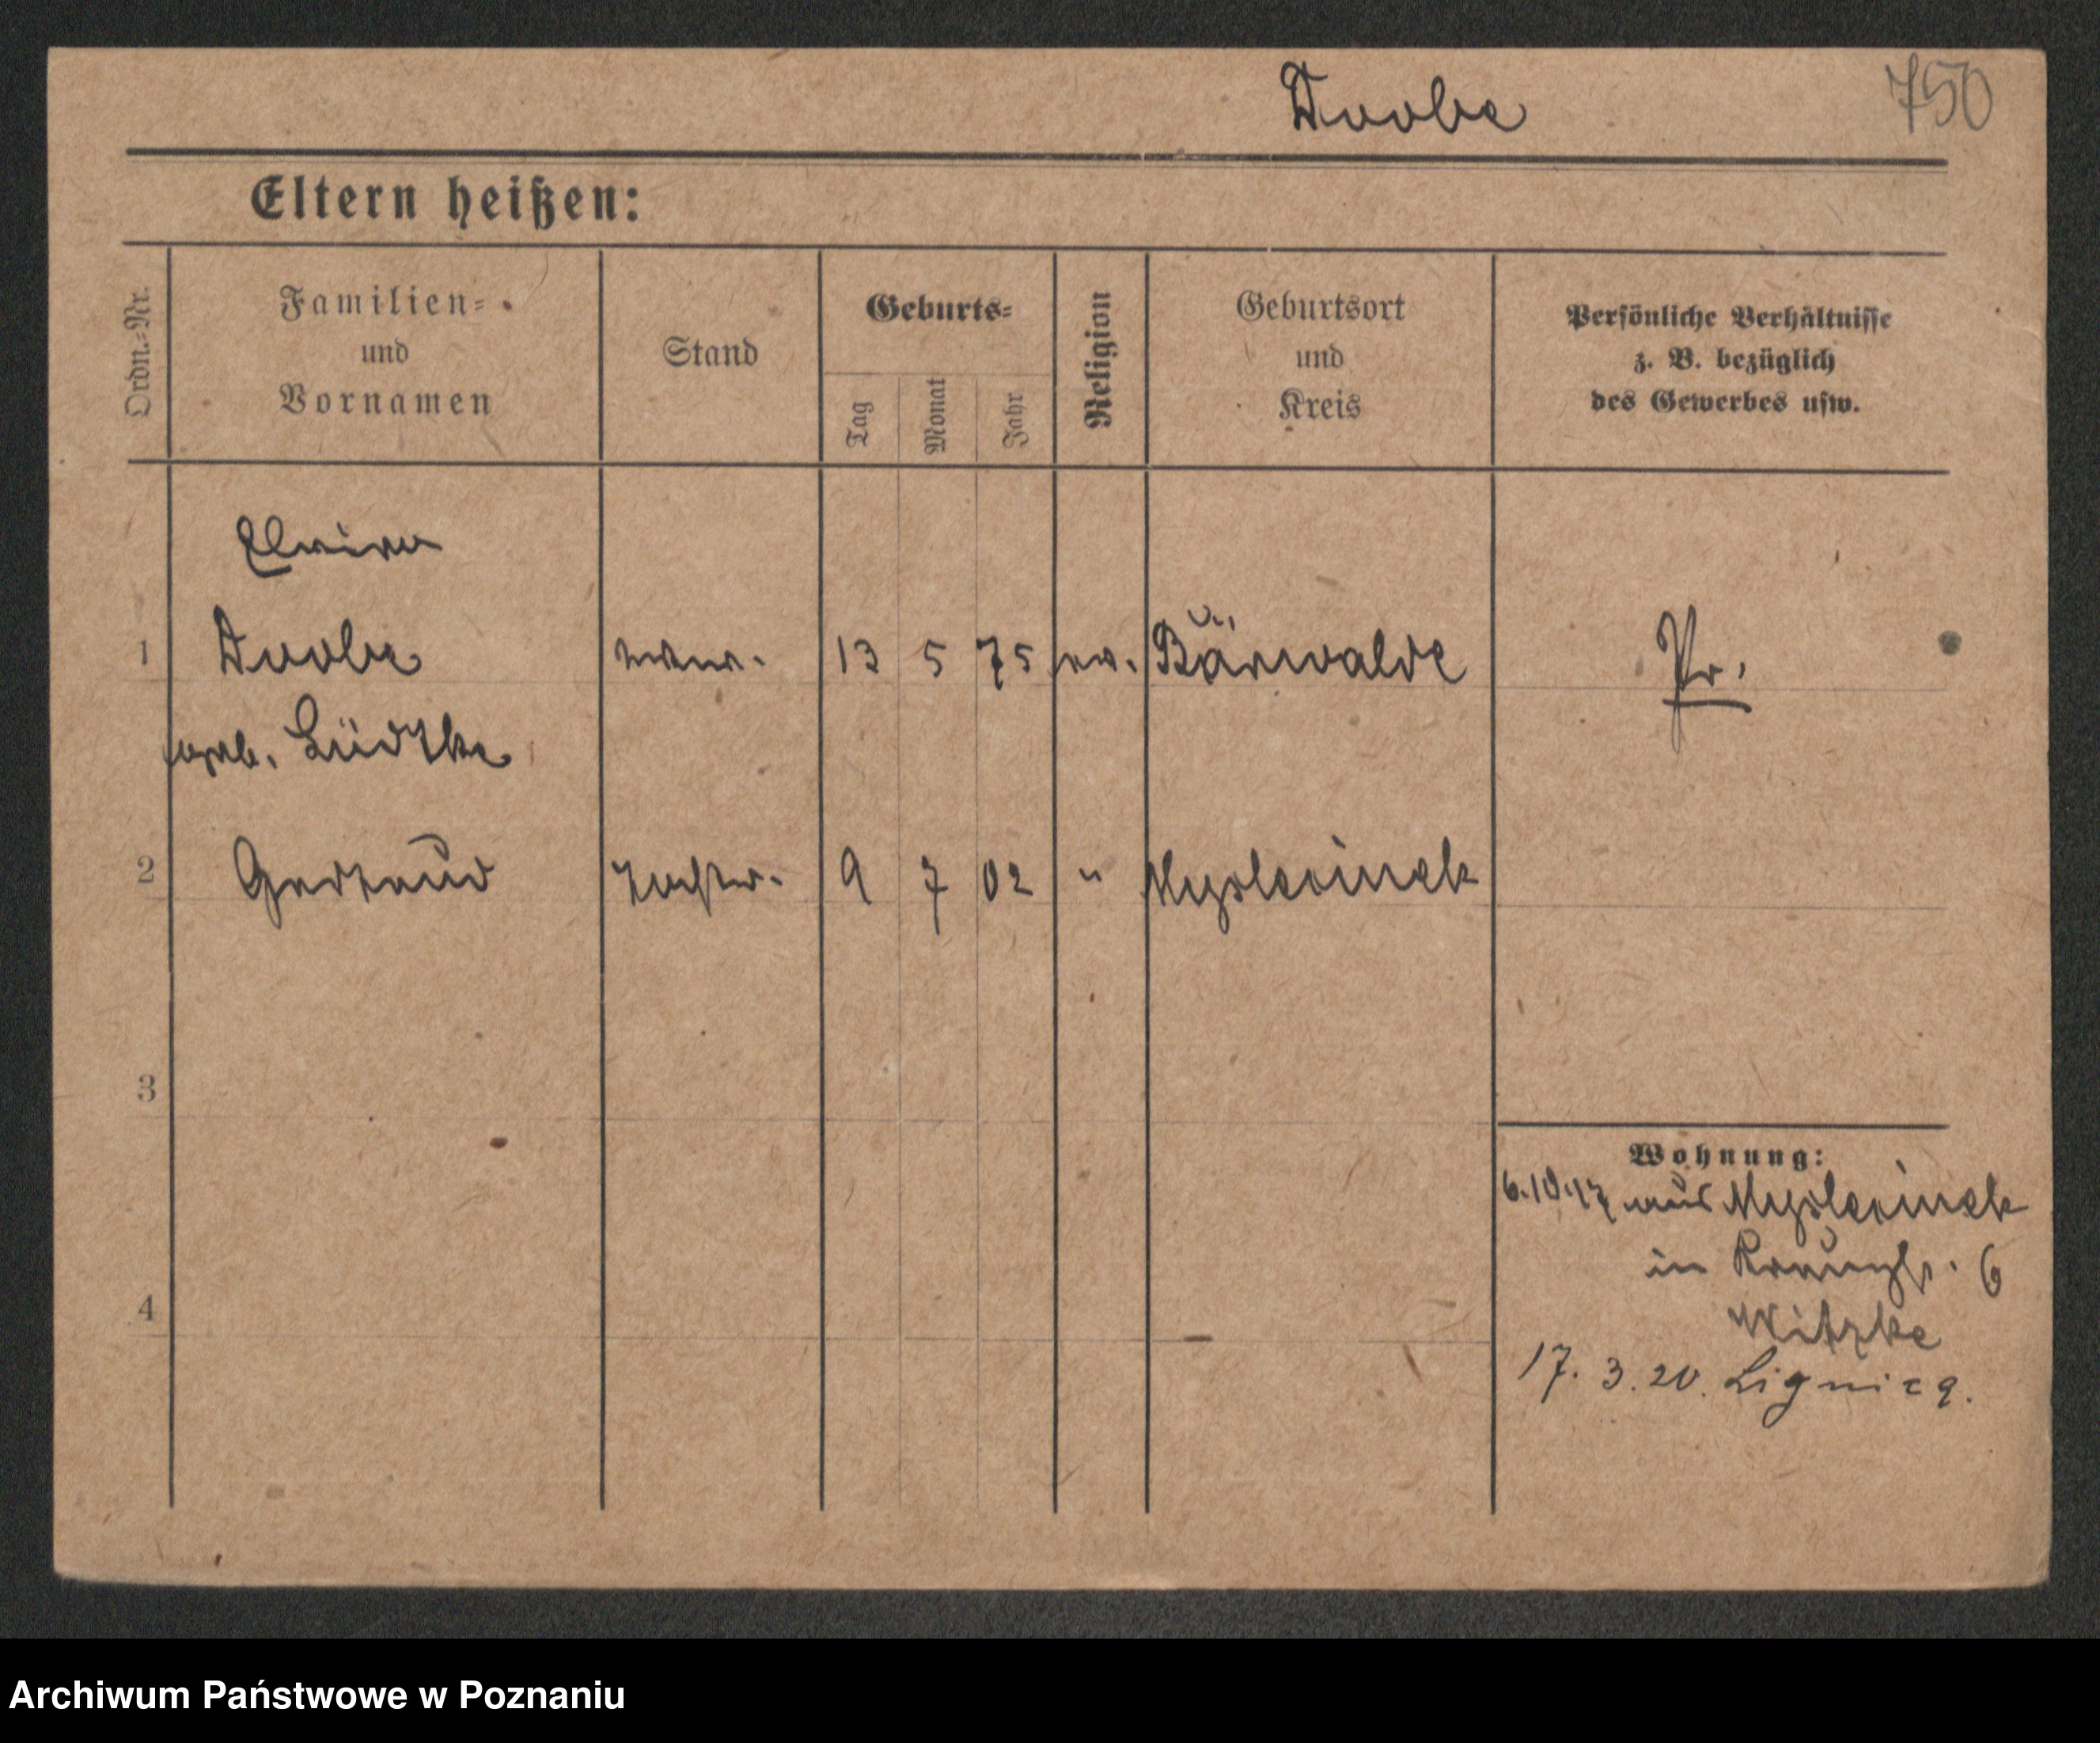 Drobe 750
Eltern heißen:
Ordn.=Nr.
Familien=
und
Vornamen
Stand
Geburts=
Tag
Monat
Jahr
Religion
Geburtsort
und
Kreis
Persönliche Verhältnisse
z. B. bezüglich
des Gewerbes usw.
Elvira
1 Drobe 13 5 75 ev. Bärwalde Pr.
geb. Lüdtke
2 Gertraud Tochter. 9 7 02 " Myslewinek
3
Wohnung:
6.10.17 aus Myslewinek
in 6
4
Witzke
17. 3. 20. Lignicz.
Archiwum Państwowe w Poznaniu